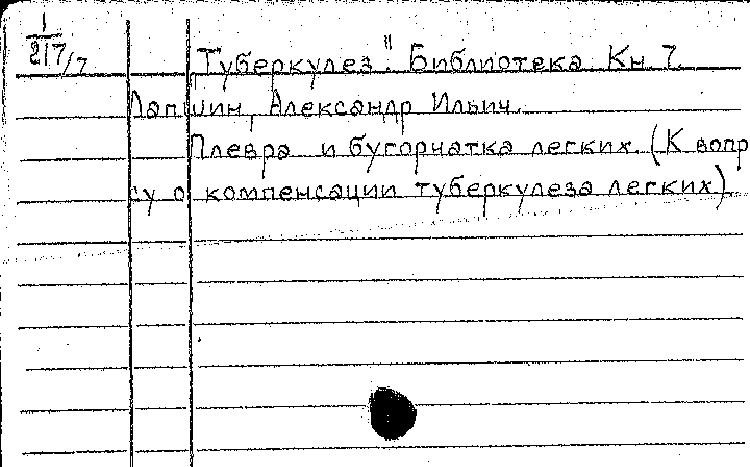 1
217/7
Туберкулез". Библиотека Кн 7.
Лапшин, Александр Ильич.
Плевра и бугорчатка легких. (К вопр
су о компенсации туберкулеза легких)